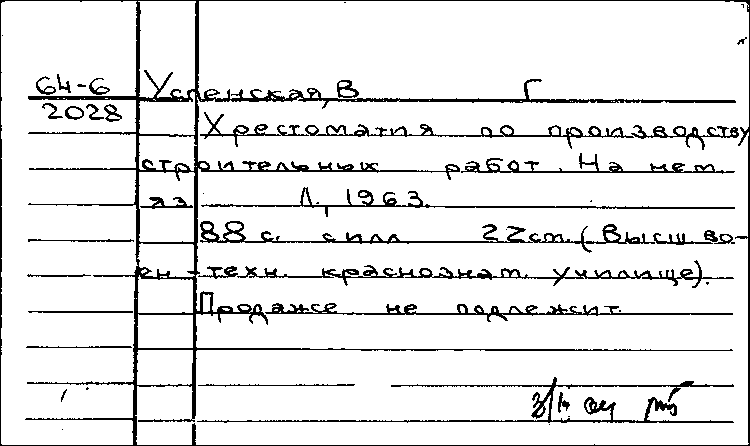 64-6 Успенская, В Г
2028
Хрестоматия по производству
строительных работ. На нем.
яз. Л., 1963.
88 с. с илл. 22 cm. (Высш. во-
ен-техн. краснознам. училище).
Продаже не подлежит.